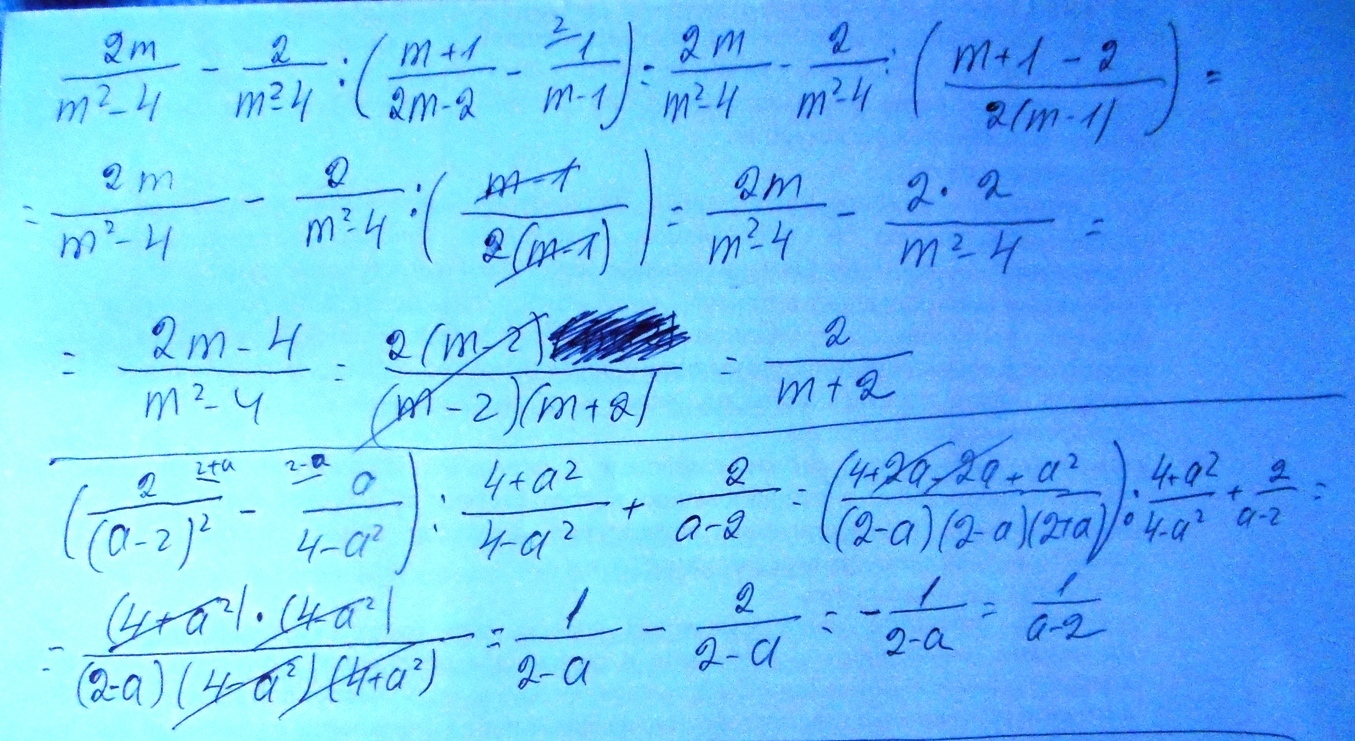 2m/(m²-4) - 2/(m²-4) : ((m+1)/(2m-2) - ²⁄1/(m-1)) = 2m/(m²-4) - 2/(m²-4) : ((m+1-2)/(2(m-1))) =
= 2m/(m²-4) - 2/(m²-4) : ((m-1)/(2(m-1))) = 2m/(m²-4) - (2·2)/(m²-4) =
= (2m-4)/(m²-4) = (2(m-2))/((m-2)(m+2)) = 2/(m+2)
(2/(a-2)² ²⁺ᵃ - ²⁻ᵃ a/(4-a²)) : (4+a²)/(4-a²) + 2/(a-2) = ((4+2a-2a+a²)/((2-a)(2-a)(2+a))) : (4+a²)/(4-a²) + 2/(a-2) =
= ((4+a²)·(4-a²))/((2-a)(4-a²)(4+a²)) = 1/(2-a) - 2/(2-a) = -1/(2-a) = 1/(a-2)